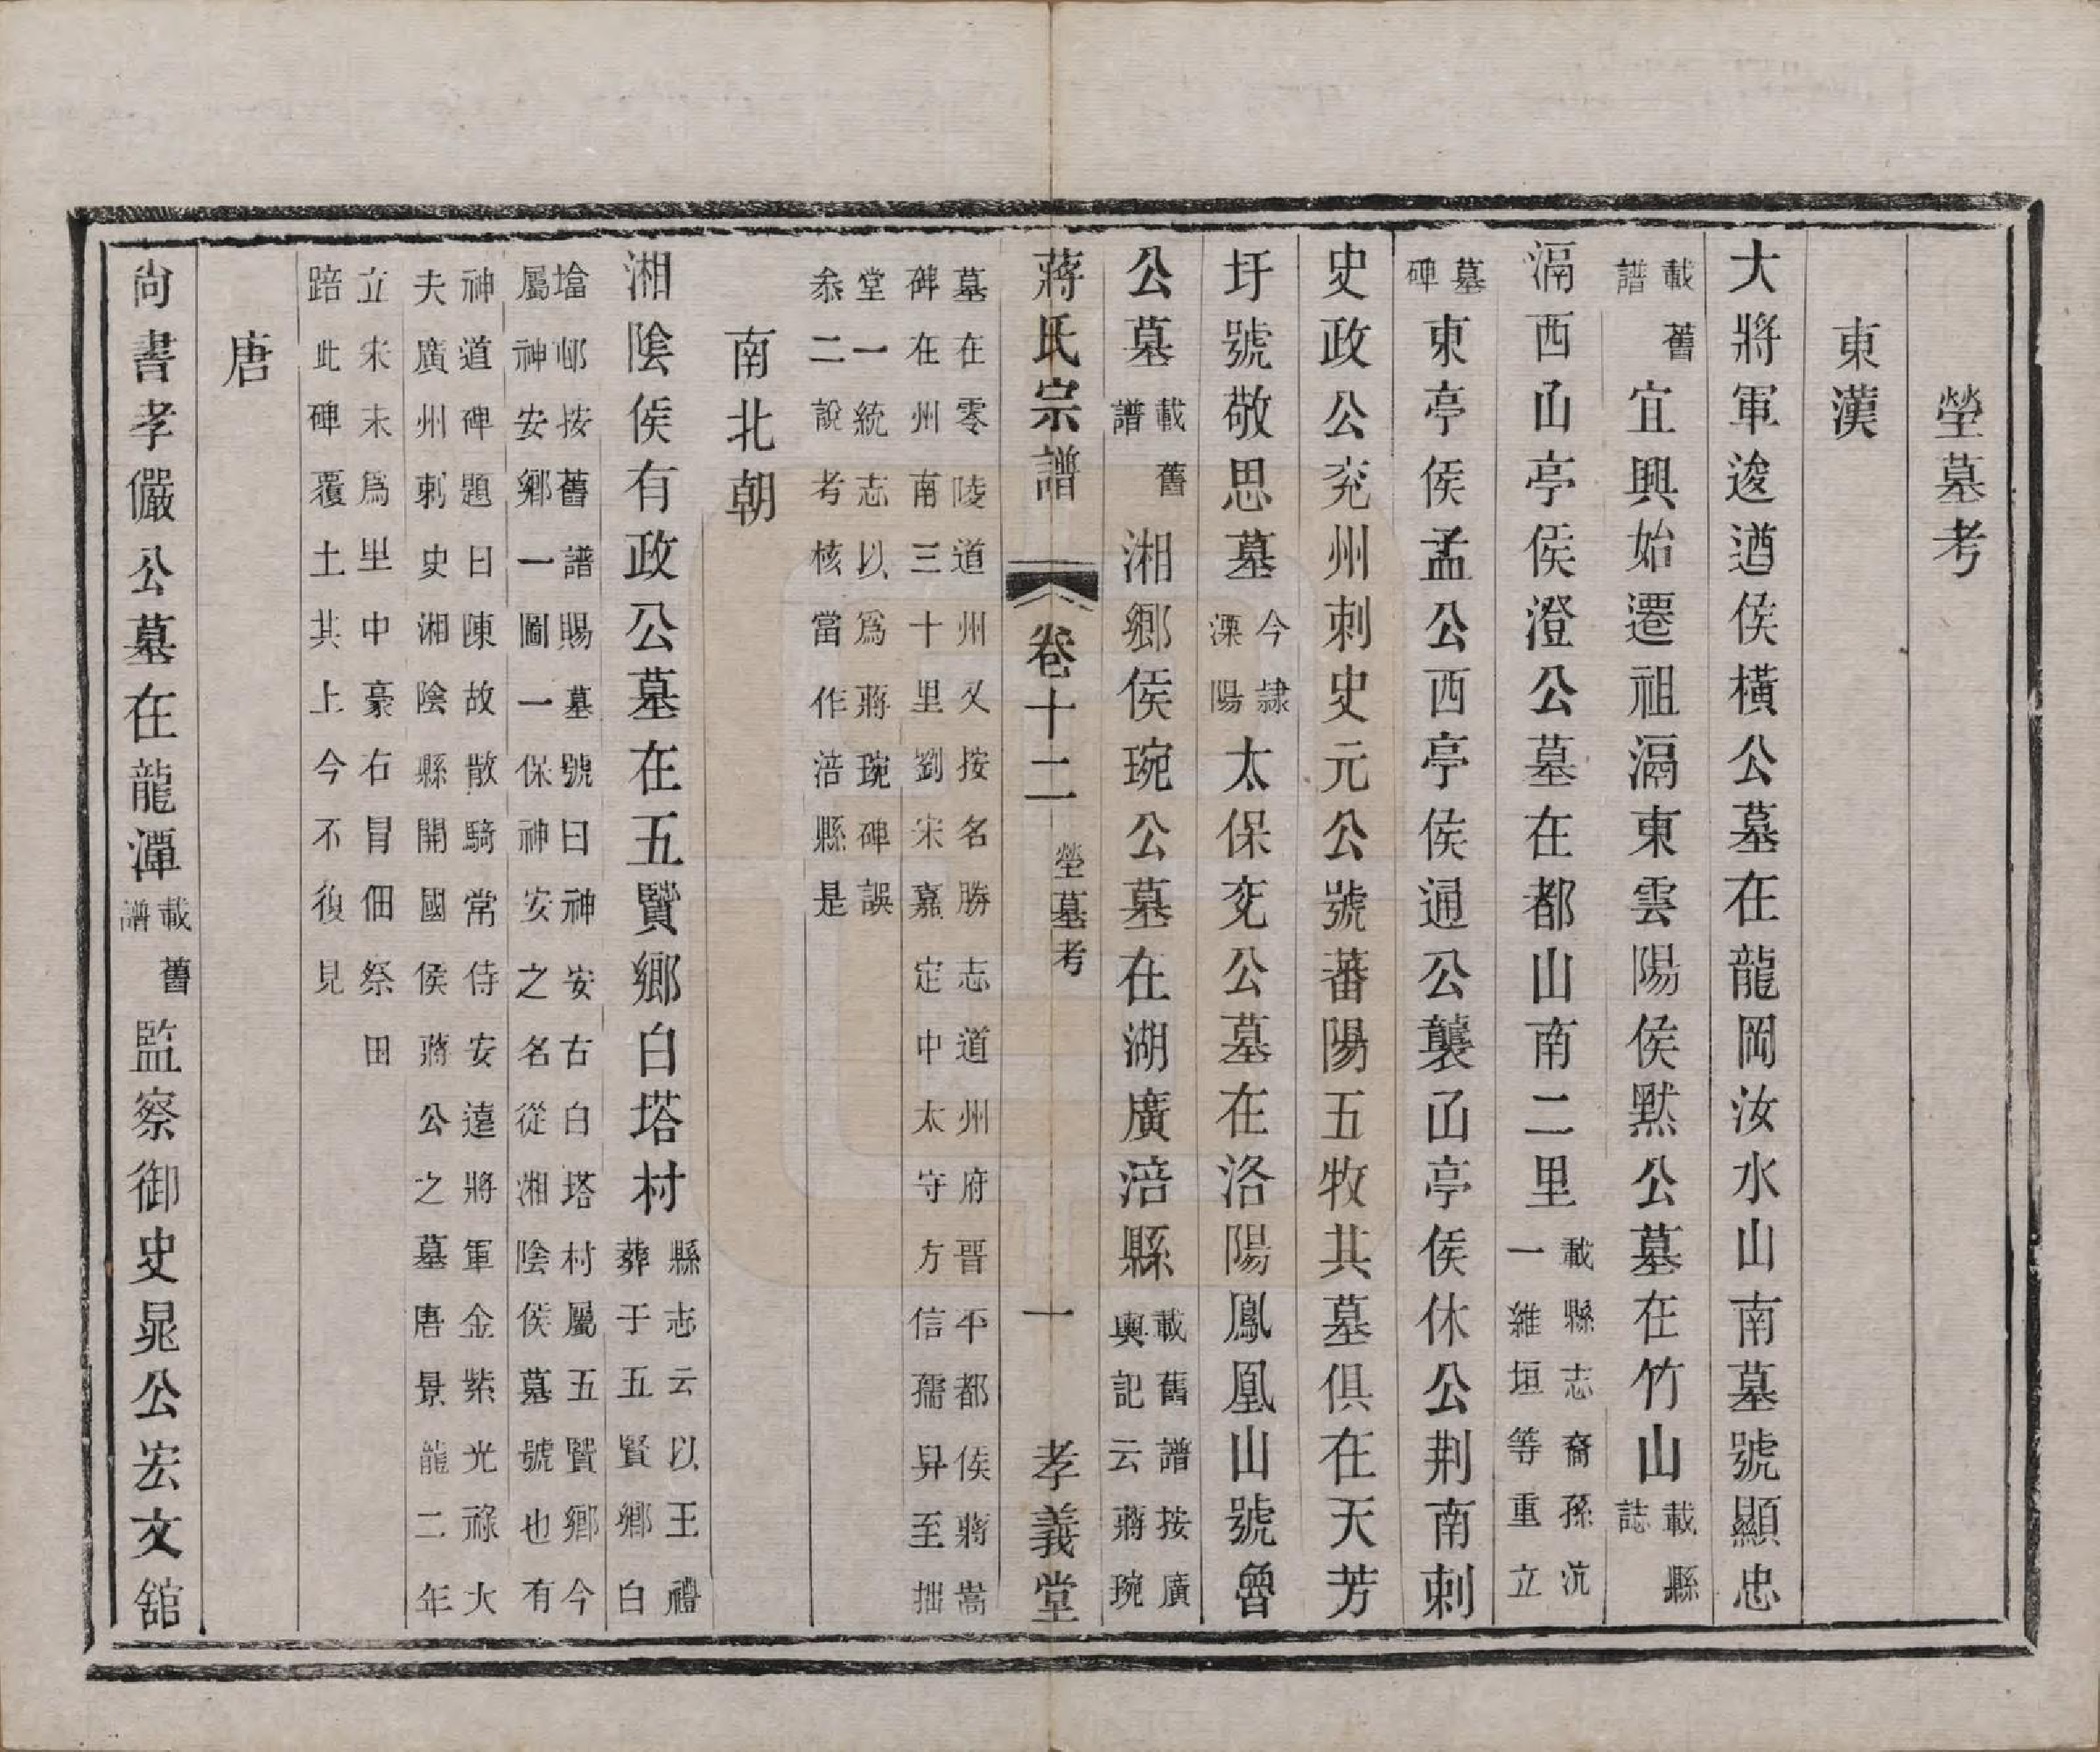 塋墓考
東漢
大將軍逡遒侯橫公墓在龍岡汝水山南墓號顯忠
載舊譜宜興始遷祖滆東雲陽侯默公墓在竹山載縣誌
滆西𠙽亭侯澄公墓在都山南二里載縣志裔孫沆一維垣等重立
墓碑東亭侯孟公西亭侯通公襲𠙽亭侯休公荆南刺
史政公兖州刺史元公號蕃陽五牧其墓俱在天芳
圩號敬思墓今隸溧陽太保兖公墓在洛陽鳳凰山號魯
公墓載舊譜湘鄉侯琬公墓在湖廣涪縣載舊譜按廣輿記云蔣琬
蔣氏宗譜 卷十二 塋墓考 一 孝義堂
墓在零陵道州又按名勝志道州府晋平都侯蔣嵩
碑在州南三十里劉宋嘉定中太守方信孺昇至拙
堂一統志以爲蔣琬碑誤
叅二說考核當作涪縣是
南北朝
湘陰侯有政公墓在五賢鄉白塔村縣志云以王禮葬于五賢鄉白
墖邨按舊譜賜墓號曰神安古白塔村屬五賢鄉今
屬神安鄉一圖一保神安之名從湘陰侯墓號也有
神道碑題曰陳故散騎常侍安遠將軍金紫光祿大
夫廣州刺史湘陰縣開國侯蔣公之墓唐景龍二年
立宋末爲里中豪右冒佃祭田
踣此碑覆土其上今不復見
唐
尙書孝儼公墓在龍潭載舊譜監察御史晁公宏文舘